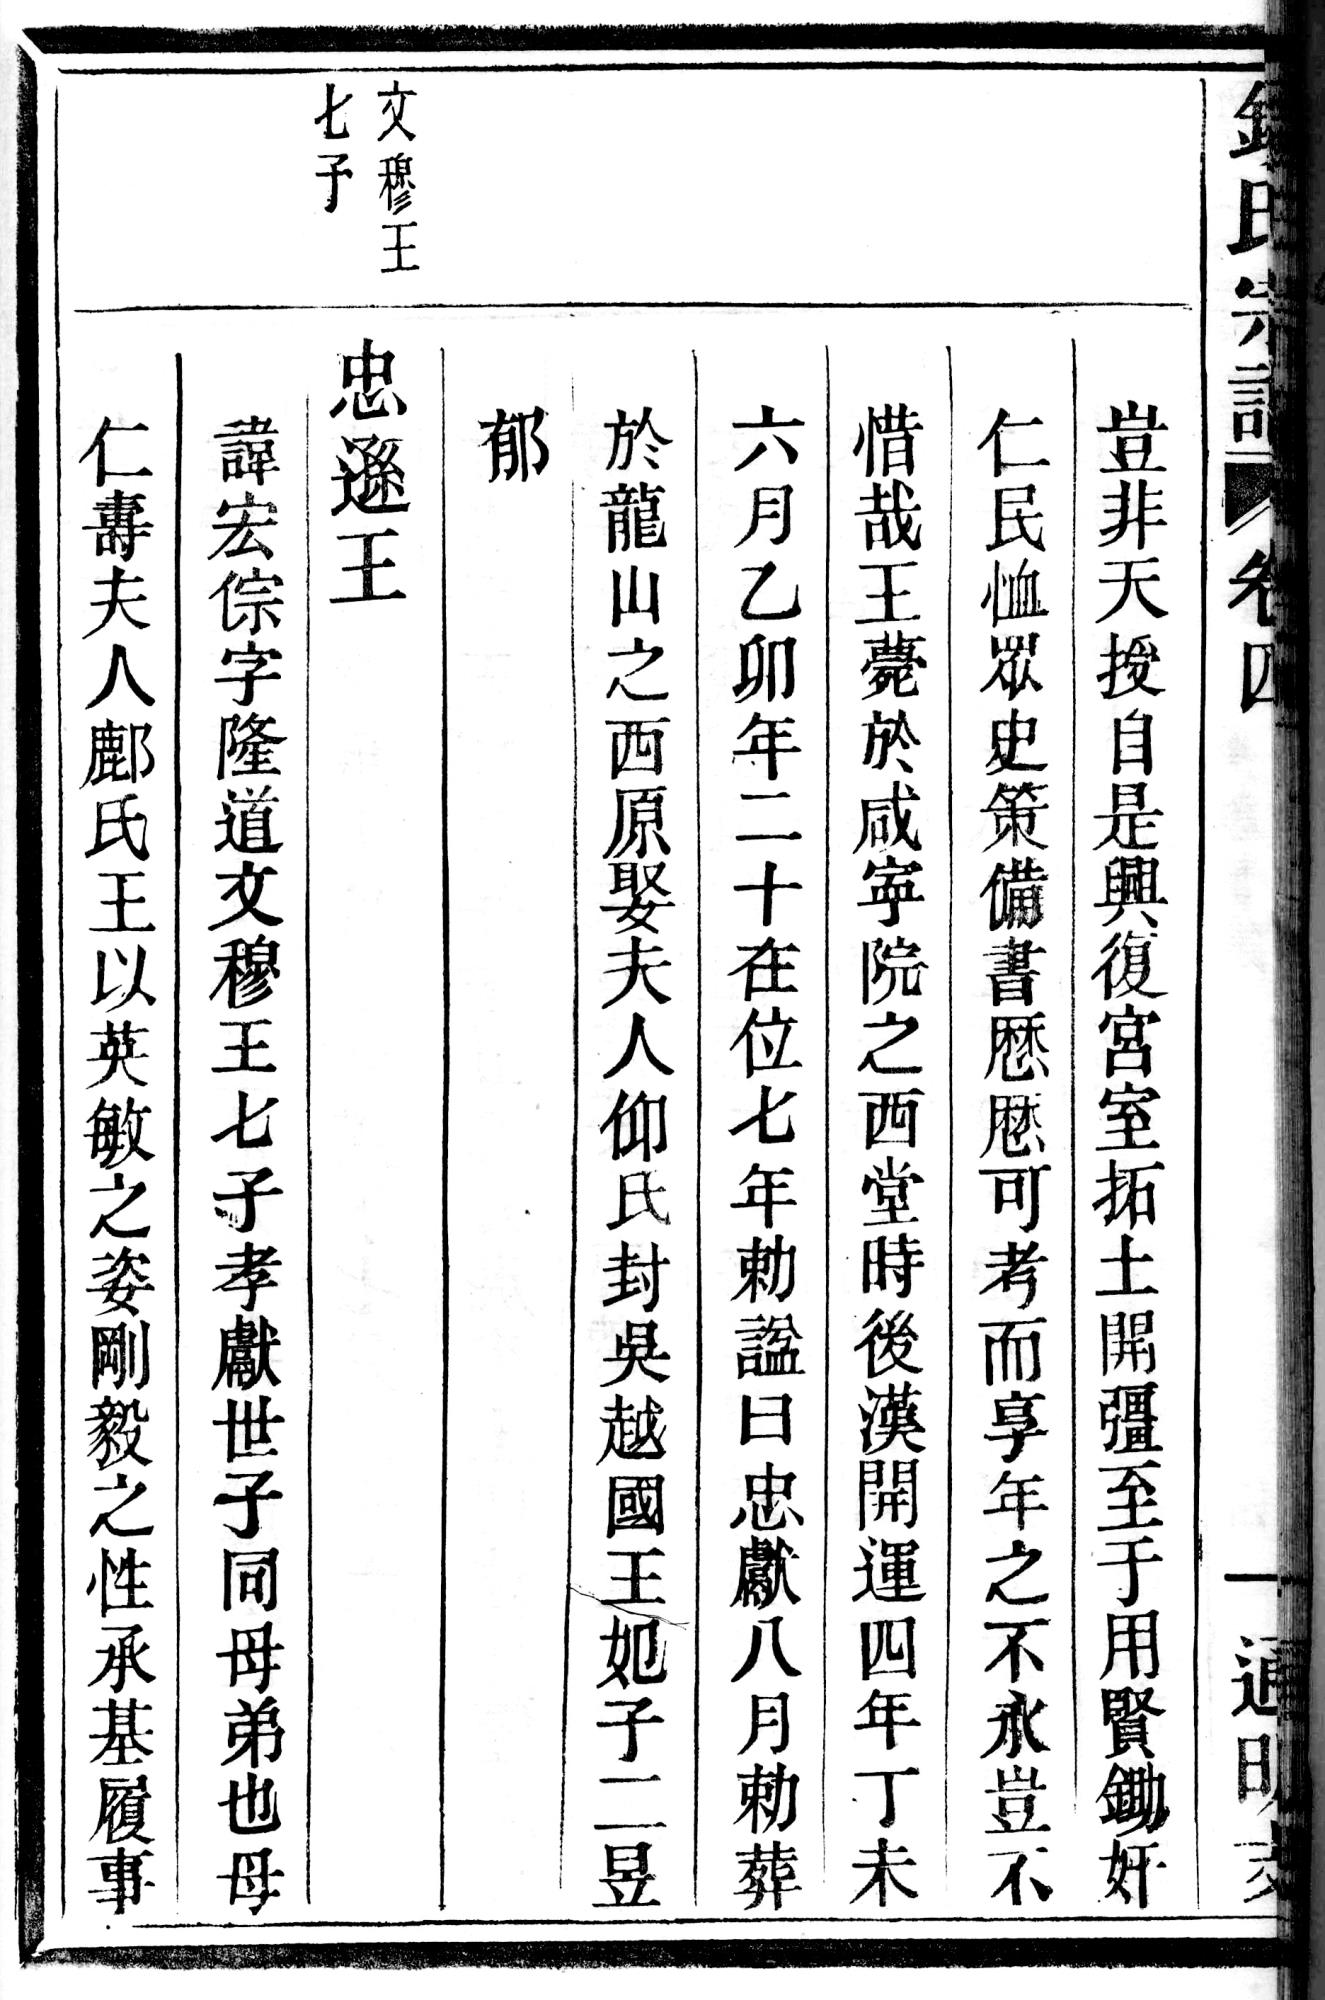 錢氏宗譜 卷四 一 通明
豈非天授自是興復宮室拓土開疆至于用賢鋤奸
仁民恤眾史策備書歷歷可考而享年之不永豈不
惜哉王薨於咸寧院之西堂時後漢開運四年丁未
六月乙卯年二十在位七年勅諡曰忠獻八月勅葬
於龍山之西原娶夫人仰氏封吳越國王妃子二昱
郁
文穆王
七子
忠遜王
諱宏倧字隆道文穆王七子孝獻世子同母弟也母
仁壽夫人鄜氏王以英敏之姿剛毅之性承基履事